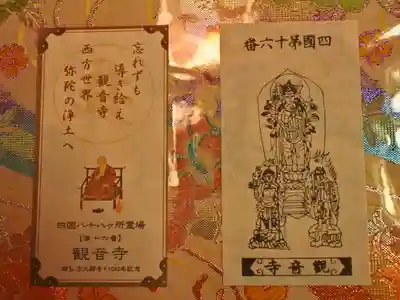 忘れずも
導き給え
観音寺
西方世界
弥陀の浄土へ
四国八十八ヶ所霊場
【第十六番】
観音寺
四國第十六番
觀音寺